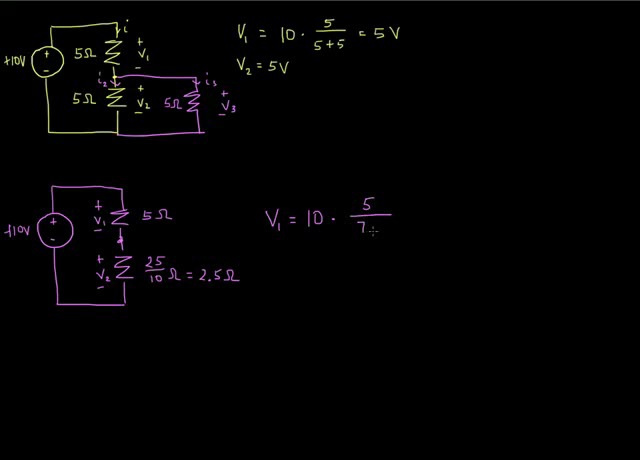 i
+
+10V 5Ω V₁
-
i₂ i₃
+ +
5Ω V₂ 5Ω V₃
- -
V₁ = 10 · 5/(5+5) = 5 V
V₂ = 5V
+10V
+
V₁ 5Ω
-
+
V₂ 25/10 Ω = 2.5Ω
-
V₁ = 10 · 5/7.